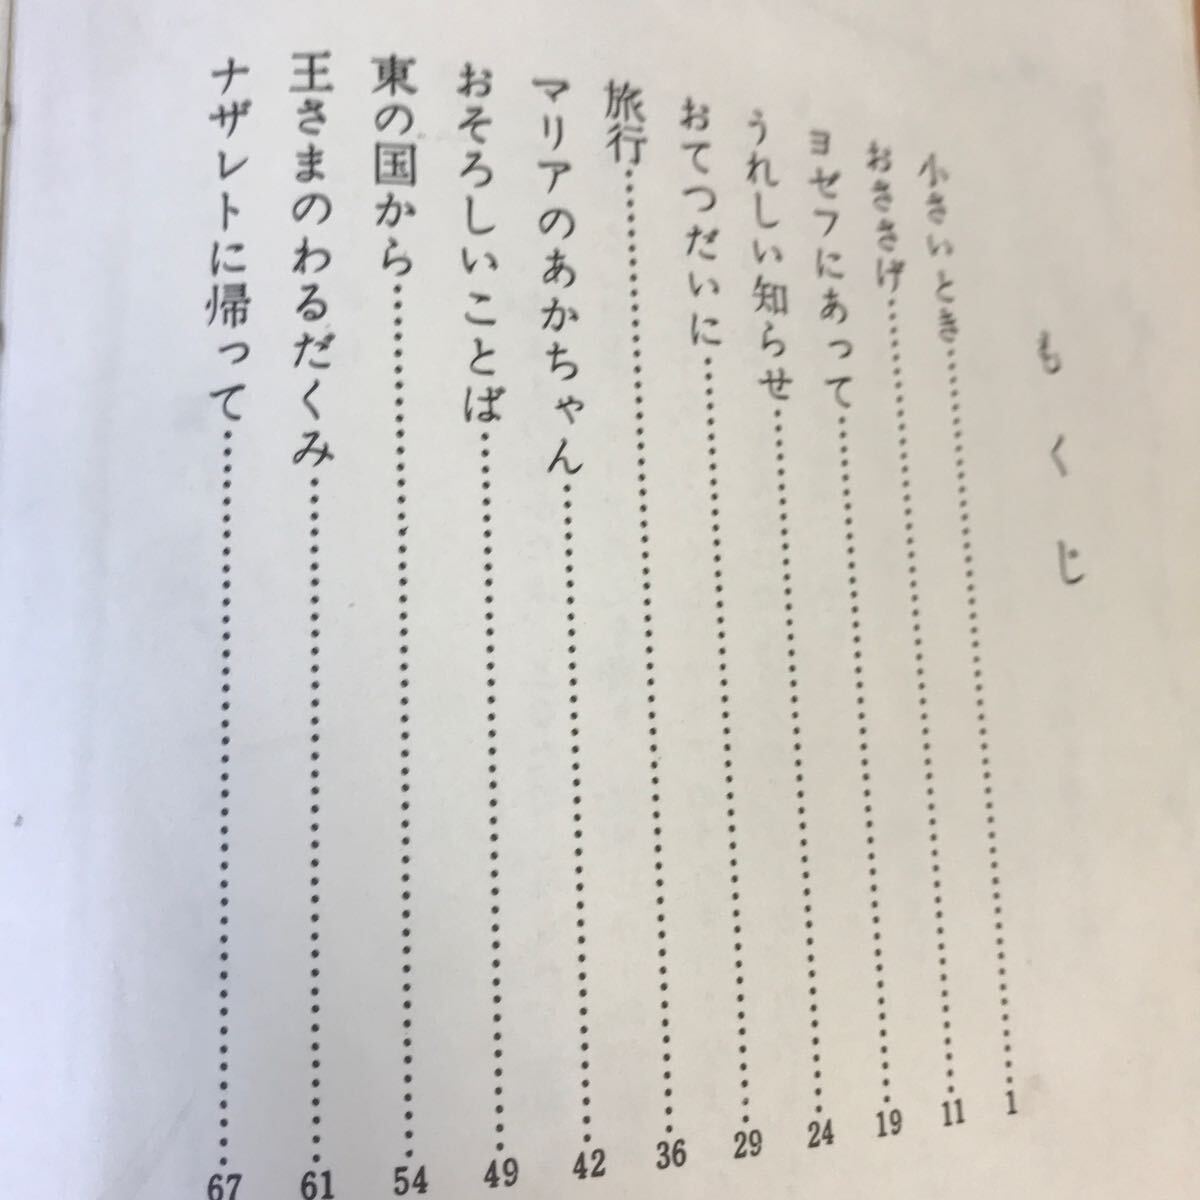 もくじ
小さいとき……………………………………1
おささげ……………………………………11
ヨゼフにあって……………………………………19
うれしい知らせ……………………………………24
おてつだいに……………………………………29
旅行……………………………………36
マリアのあかちゃん……………………………………42
おそろしいことば……………………………………49
東の国から……………………………………54
王さまのわるだくみ……………………………………61
ナザレトに帰って……………………………………67